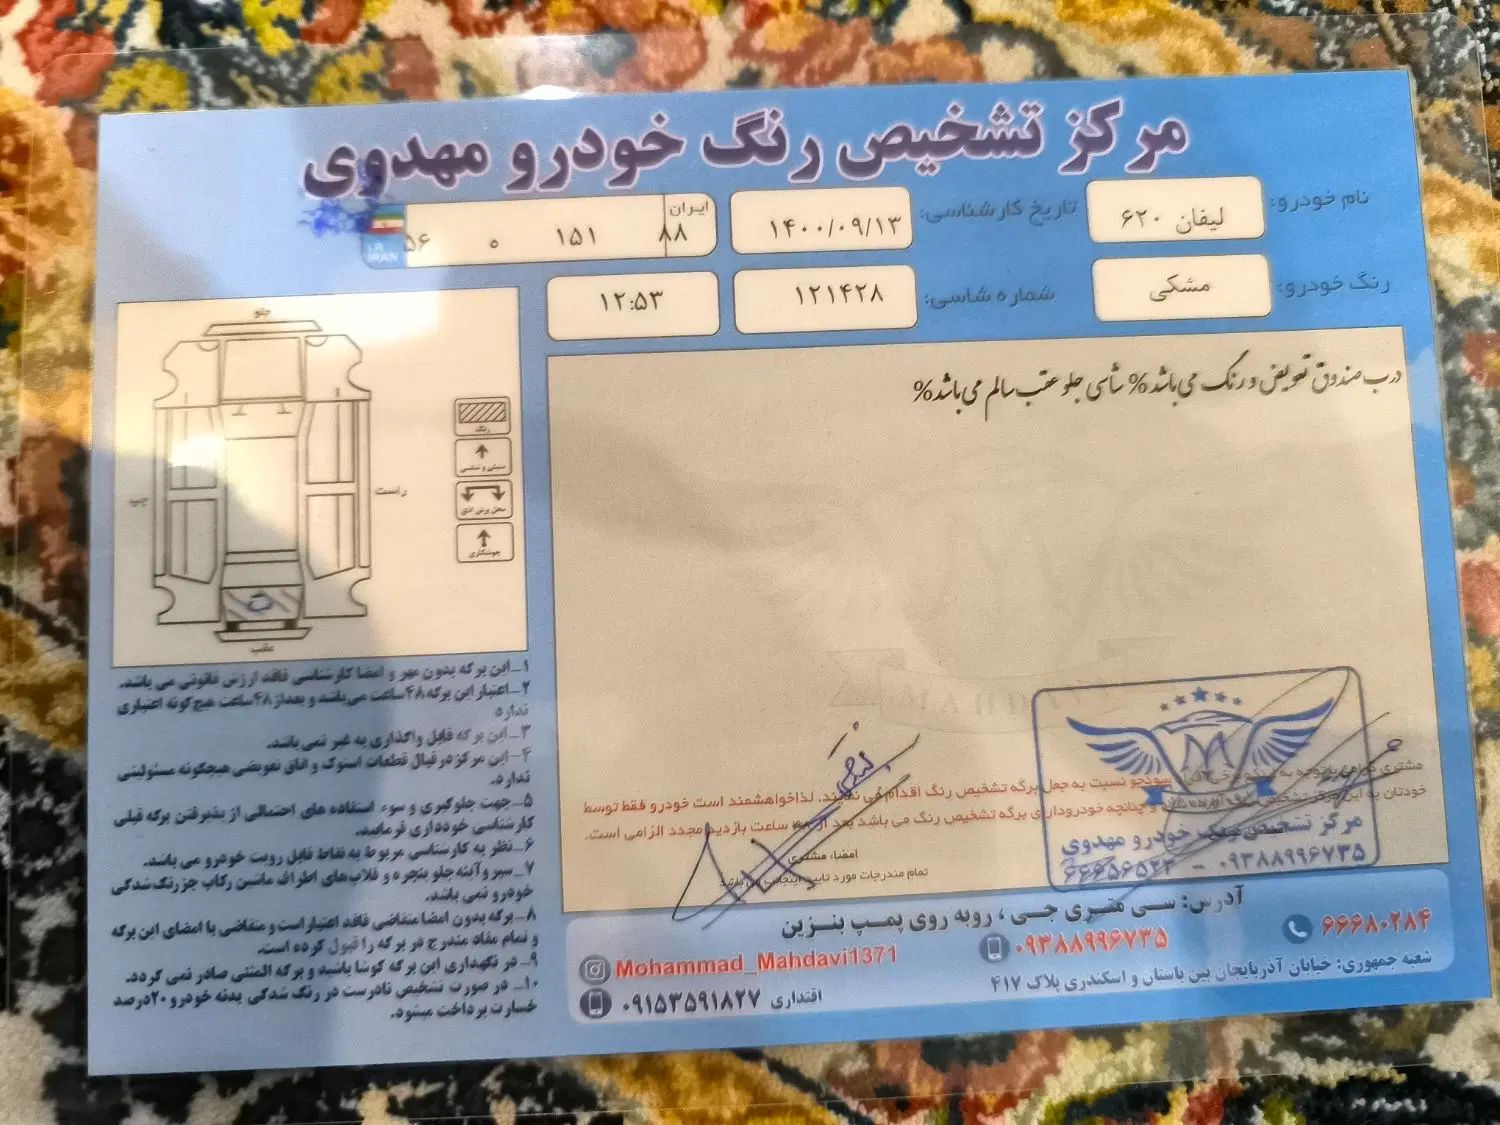 مرکز تشخیص رنگ خودرو مهدوی
نام خودرو: لیفان ۶۲۰
تاریخ کارشناسی: ۱۴۰۰/۰۹/۱۳
ایران
۵۶ ه ۱۵۱ ۸۸
I.R.
IRAN
رنگ خودرو: مشکی
شماره شاسی: ۱۲۱۴۲۸
۱۲:۵۳
درب صندوق تعویض و رنگ می باشد% شاسی جلو عقب سالم می باشد%
جلو
راست
چپ
عقب
رنگ
جوشکاری
۱_این برگه بدون مهر و امضا کارشناسی فاقد ارزش قانونی می باشد.
۲_اعتبار این برگه ۴۸ ساعت می باشد و بعد از ۴۸ ساعت هیچ گونه اعتباری
ندارد
۳_این برگه قابل واگذاری به غیر نمی باشد.
۴_این مرکز در قبال قطعات استوک و اتاق تعویضی هیچگونه مسئولیتی
ندارد.
۵_جهت جلوگیری و سوء استفاده های احتمالی از پذیرفتن برگه قبلی
کارشناسی خودداری فرمایید.
۶_نظریه کارشناسی مربوط به نقاط قابل رویت خودرو می باشد.
۷_سپر و آینه جلو پنجره و قلاب های اطراف ماشین رکاب جز رنگ شدگی
خودرو نمی باشد.
۸_برگه بدون امضا متقاضی فاقد اعتبار است و متقاضی با امضای این برگه
و تمام مفاد مندرج در برگه را قبول کرده است.
۹_در نگهداری این برگه کوشا باشید و برگه المثنی صادر نمی گردد.
۱۰_در صورت تشخیص نادرست در رنگ شدگی بدنه خودرو ۲۰درصد
خسارت پرداخت میشود.
MAHDAVI
مشتری گرامی با توجه به سودجو نسبت به جعل برگه تشخیص رنگ اقدام می نمایند. لذا خواهشمند است خودرو فقط توسط
خودتان به این مرکز تشخیص و چنانچه خودرو دارای برگه تشخیص رنگ می باشد بعد از ۴۸ ساعت بازدید مجدد الزامی است.
امضاء مشتری
تمام مندرجات مورد تایید اینجانب می باشد
مرکز تشخیص رنگ خودرو مهدوی
۰۹۳۸۸۹۹۶۷۳۵ - ۶۶۶۵۶۵۲۳
آدرس: سی متری جی ، روبه روی پمپ بنزین
۶۶۶۸۰۲۸۴
۰۹۳۸۸۹۹۶۷۳۵
Mohammad_Mahdavi1371
شعبه جمهوری: خیابان آذربایجان بین باستان و اسکندری پلاک ۴۱۷
اقتداری ۰۹۱۵۳۵۹۱۸۲۷